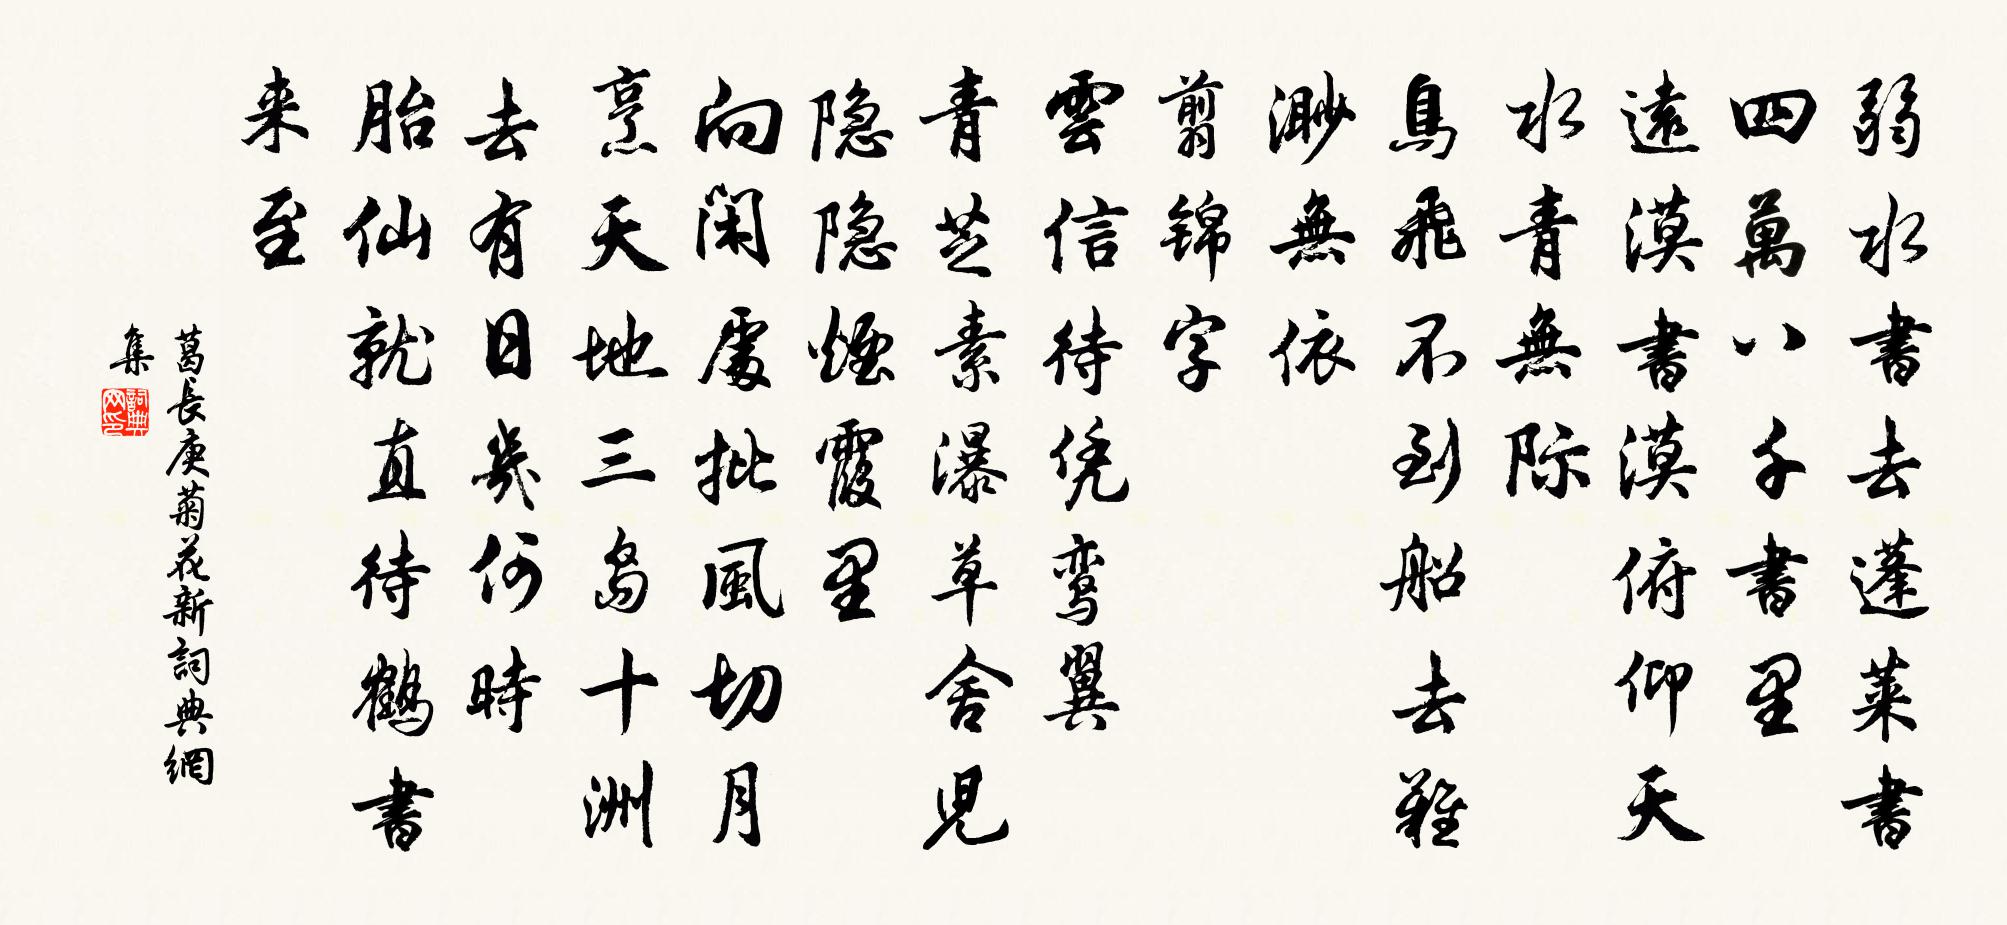 弱水書去蓬萊書
四萬八千書里
遠漠書漠俯仰天
水青無際
鳥飛不到船去難
渺無依
剪锦字
雲信待凭鸾翼
青芝素瀑草舍見
隐隐煙霞里
向閑處批風切月
烹天地三島十洲
去有日幾何時
胎仙就直待鶴書
来至
葛長庚菊花新詞典網
集
詞典
网印